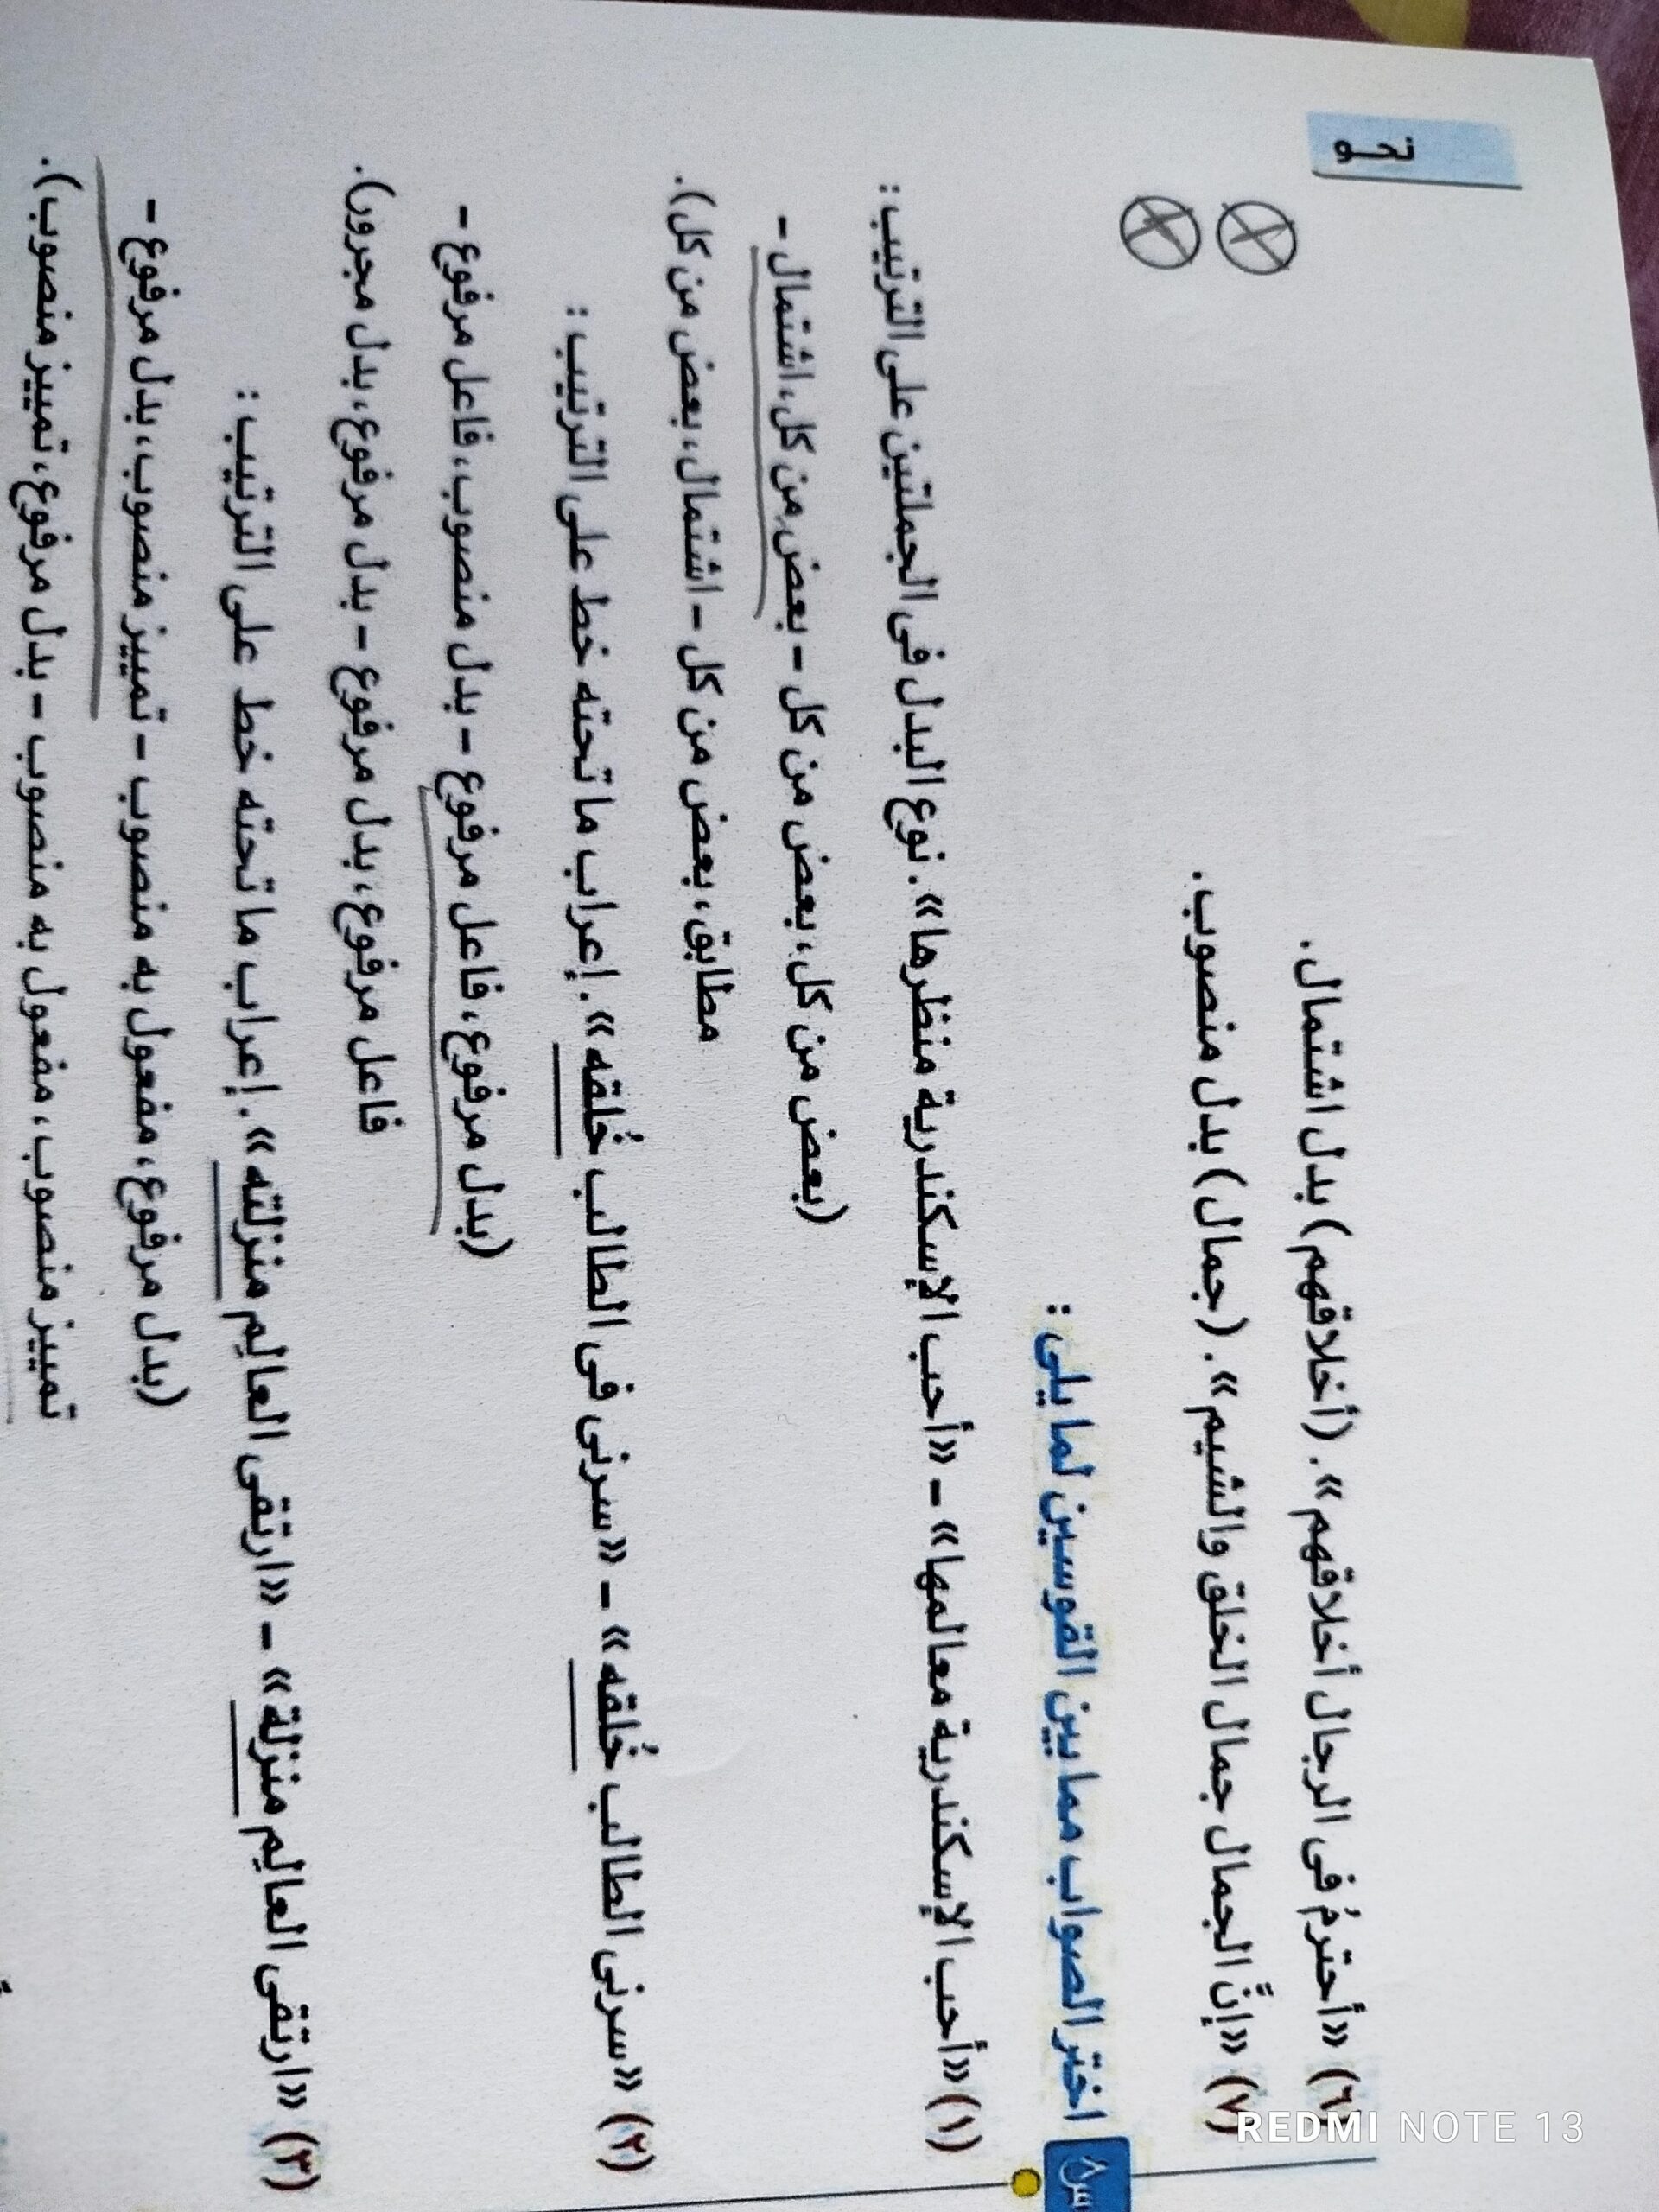 نحو
(٦) «أحترمُ فى الرجال أخلاقهم». (أخلاقهم) بدل اشتمال.
(٧) «إنَّ الجمال جمال الخلق والشيم». (جمال) بدل منصوب.
س اختر الصواب مما بين القوسين لما يلى :
(١) «أحب الإسكندرية معالمها» – «أحب الإسكندرية منظرها». نوع البدل فى الجملتين على الترتيب :
(بعض من كل، بعض من كل – بعض من كل، اشتمال –
مطابق، بعض من كل – اشتمال، بعض من كل).
(٢) «سرنى الطالب خُلقه» – «سرنى فى الطالب خُلقه». إعراب ما تحته خط على الترتيب :
(بدل مرفوع، فاعل مرفوع – بدل منصوب، فاعل مرفوع –
فاعل مرفوع، بدل مرفوع – بدل مرفوع، بدل مجرور).
(٣) «ارتقى العالِم منزلة» – «ارتقى العالِم منزلته». إعراب ما تحته خط على الترتيب :
(بدل مرفوع، مفعول به منصوب – تمييز منصوب، بدل مرفوع –
تمييز منصوب، مفعول به منصوب – بدل مرفوع، تمييز منصوب).
REDMI NOTE 13